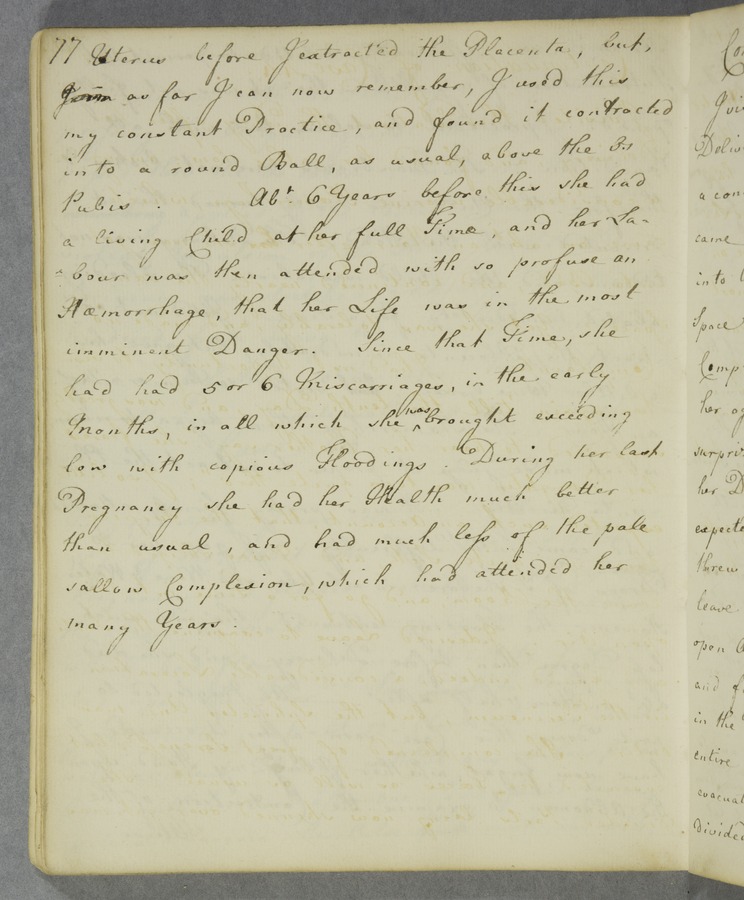 77 Uterus before I extracted the Placenta, but,
as far I can now remember, I used this
my constant Practice, and found it contracted
into a round Ball, as usual, above the Os
Pubis. Abt. 6 Years before this she had
a living Child at her full Time, and her La-
-bour was then attended with so profuse an
Hæmorrhage, that her Life was in the most
imminent Danger. Since that Time, she
had had 5 or 6 Miscarriages, in the early
Months, in all which she was brought exceeding
low with copious Floodings. During her last
Pregnancy she had her Health much better
than usual, and had much less of the pale
sallow Complexion, which had attended her
many Years.
Jvi
Deliv
a con
came
into
Space
Comp
her
surpri
her D
expecte
threw
leave
open
and f
in the
entire
evacuat
Divided